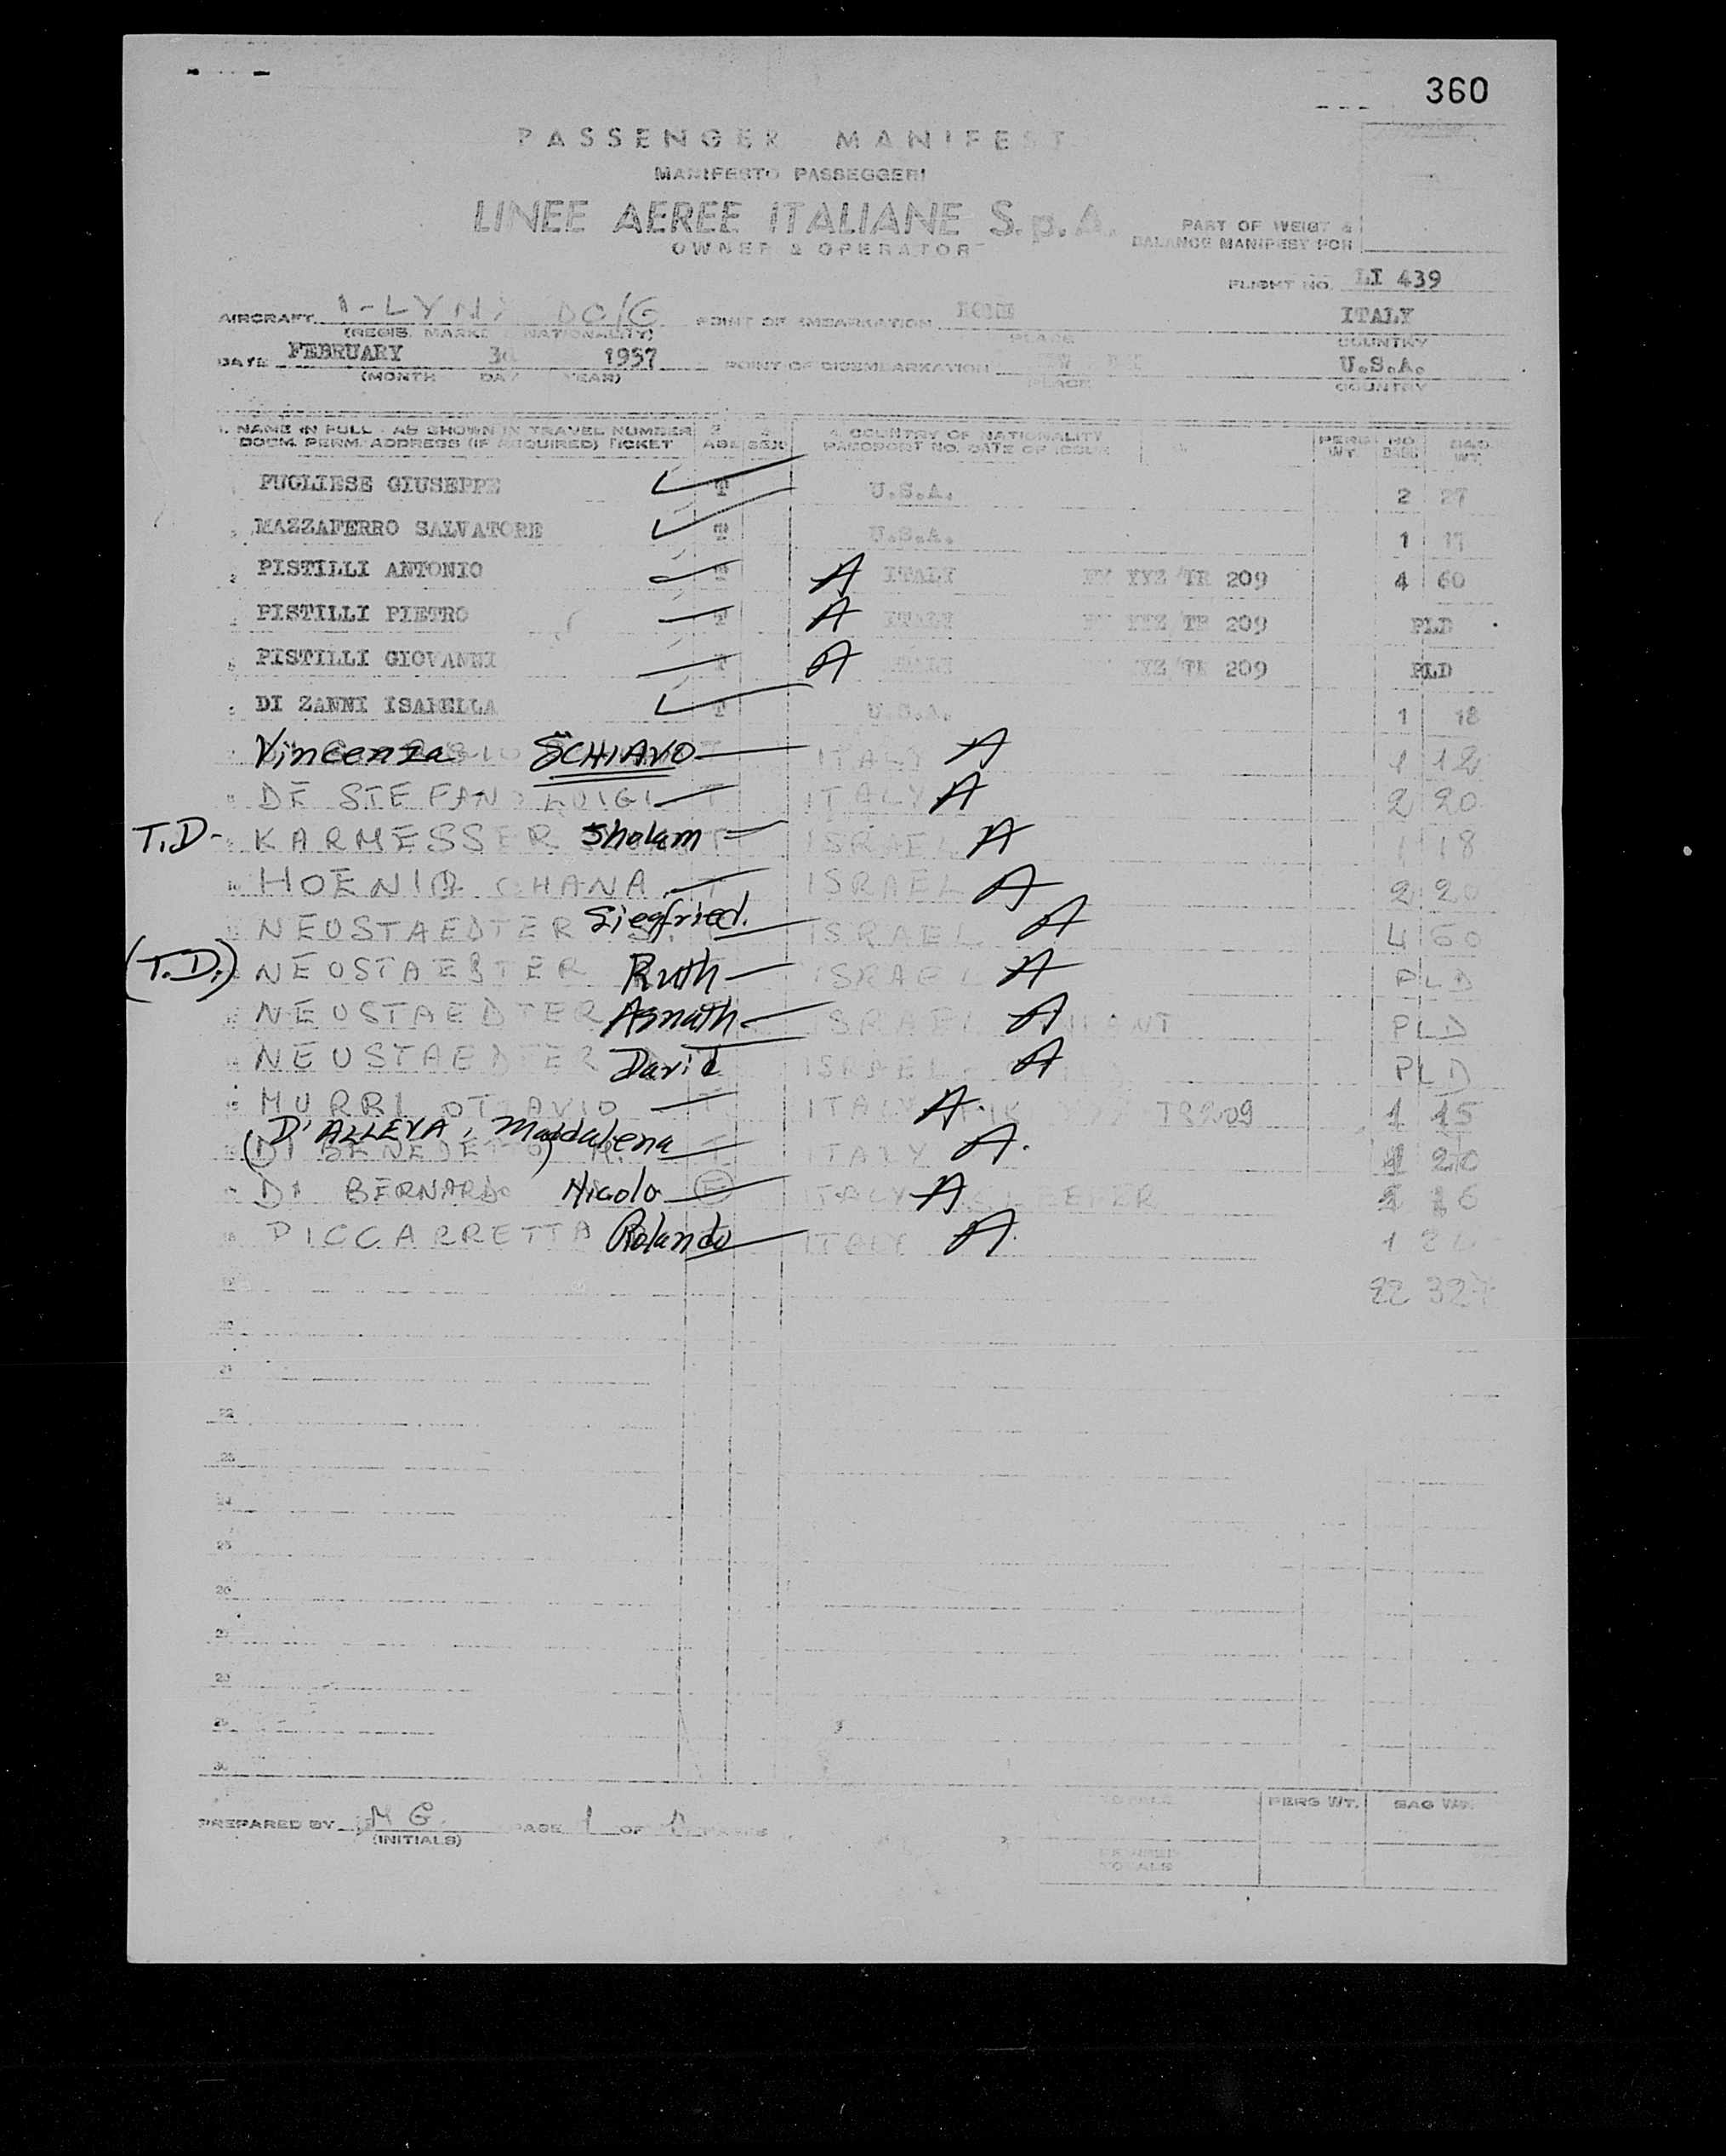 360
PASSENGER MANIFEST
MANIFESTO PASSEGGERI
LINEE AEREE ITALIANE S.p.A.
OWNER & OPERATOR
PART OF WEIGT &
BALANCE MANIFEST FOR
FLIGHT NO. LI 439
AIRCRAFT I-LYNX DC/6 POINT OF EMBARKATION ROME ITALY
(REGIS. MARKS NATIONALITY) PLACE COUNTRY
DATE FEBRUARY 3d 1957 POINT OF DISEMBARKATION U.S.A.
(MONTH DAY YEAR) PLACE COUNTRY
1. NAME IN FULL - AS SHOWN IN TRAVEL NUMBER 2 4. COUNTRY OF NATIONALITY PERS NO BAG
DOCM. PERM. ADDRESS (IF REQUIRED) TICKET AGE SEX PASSPORT NO. DATE OF ISSUE WT. BAGG WT.
PUGLIESE GIUSEPPE T U.S.A. 2 27
MAZZAFERRO SALVATORE T U.S.A. 1 17
PISTILLI ANTONIO T A ITALY XYZ/TR 209 4 60
PISTILLI PIETRO T A ITALY XYZ TR 209 PLD
5 PISTILLI GIOVANNI T A XYZ/TR 209 PLD
DI ZANNI ISABELLA T U.S.A. 1 18
Vincenza SCHIAVO T ITALY A 1 12
DE STEFANO LUIGI T ITALY A 2 20
T.D- KARMESSER Sholam T ISRAEL A 1 18
10 HOENIG CHANA T ISRAEL A 2 20
NEUSTAEDTER Siegfried. ISRAEL A 4 60
(T.D.) NEUSTAEDTER Ruth ISRAEL A PLD
NEUSTAEDTER Asnath ISRAEL A INFANT PLD
NEUSTAEDTER David ISRAEL A PLD
15 MURRI OTTAVIO T ITALY A. TR209 1 15
D'ALLEVA, Maddalena
(DI BENEDETTO) T ITALY A. 20
DI BERNARDO Nicolo ITALY A SLEEPER 16
18 PICCARRETTA Rolando ITALY A. 1
19 22 327
20
21
22
23
24
25
26
27
28
29
30
PREPARED BY M G. PAGE 1 OF PAGES TOTALS PERS WT. BAG WT.
(INITIALS)
TOTALS